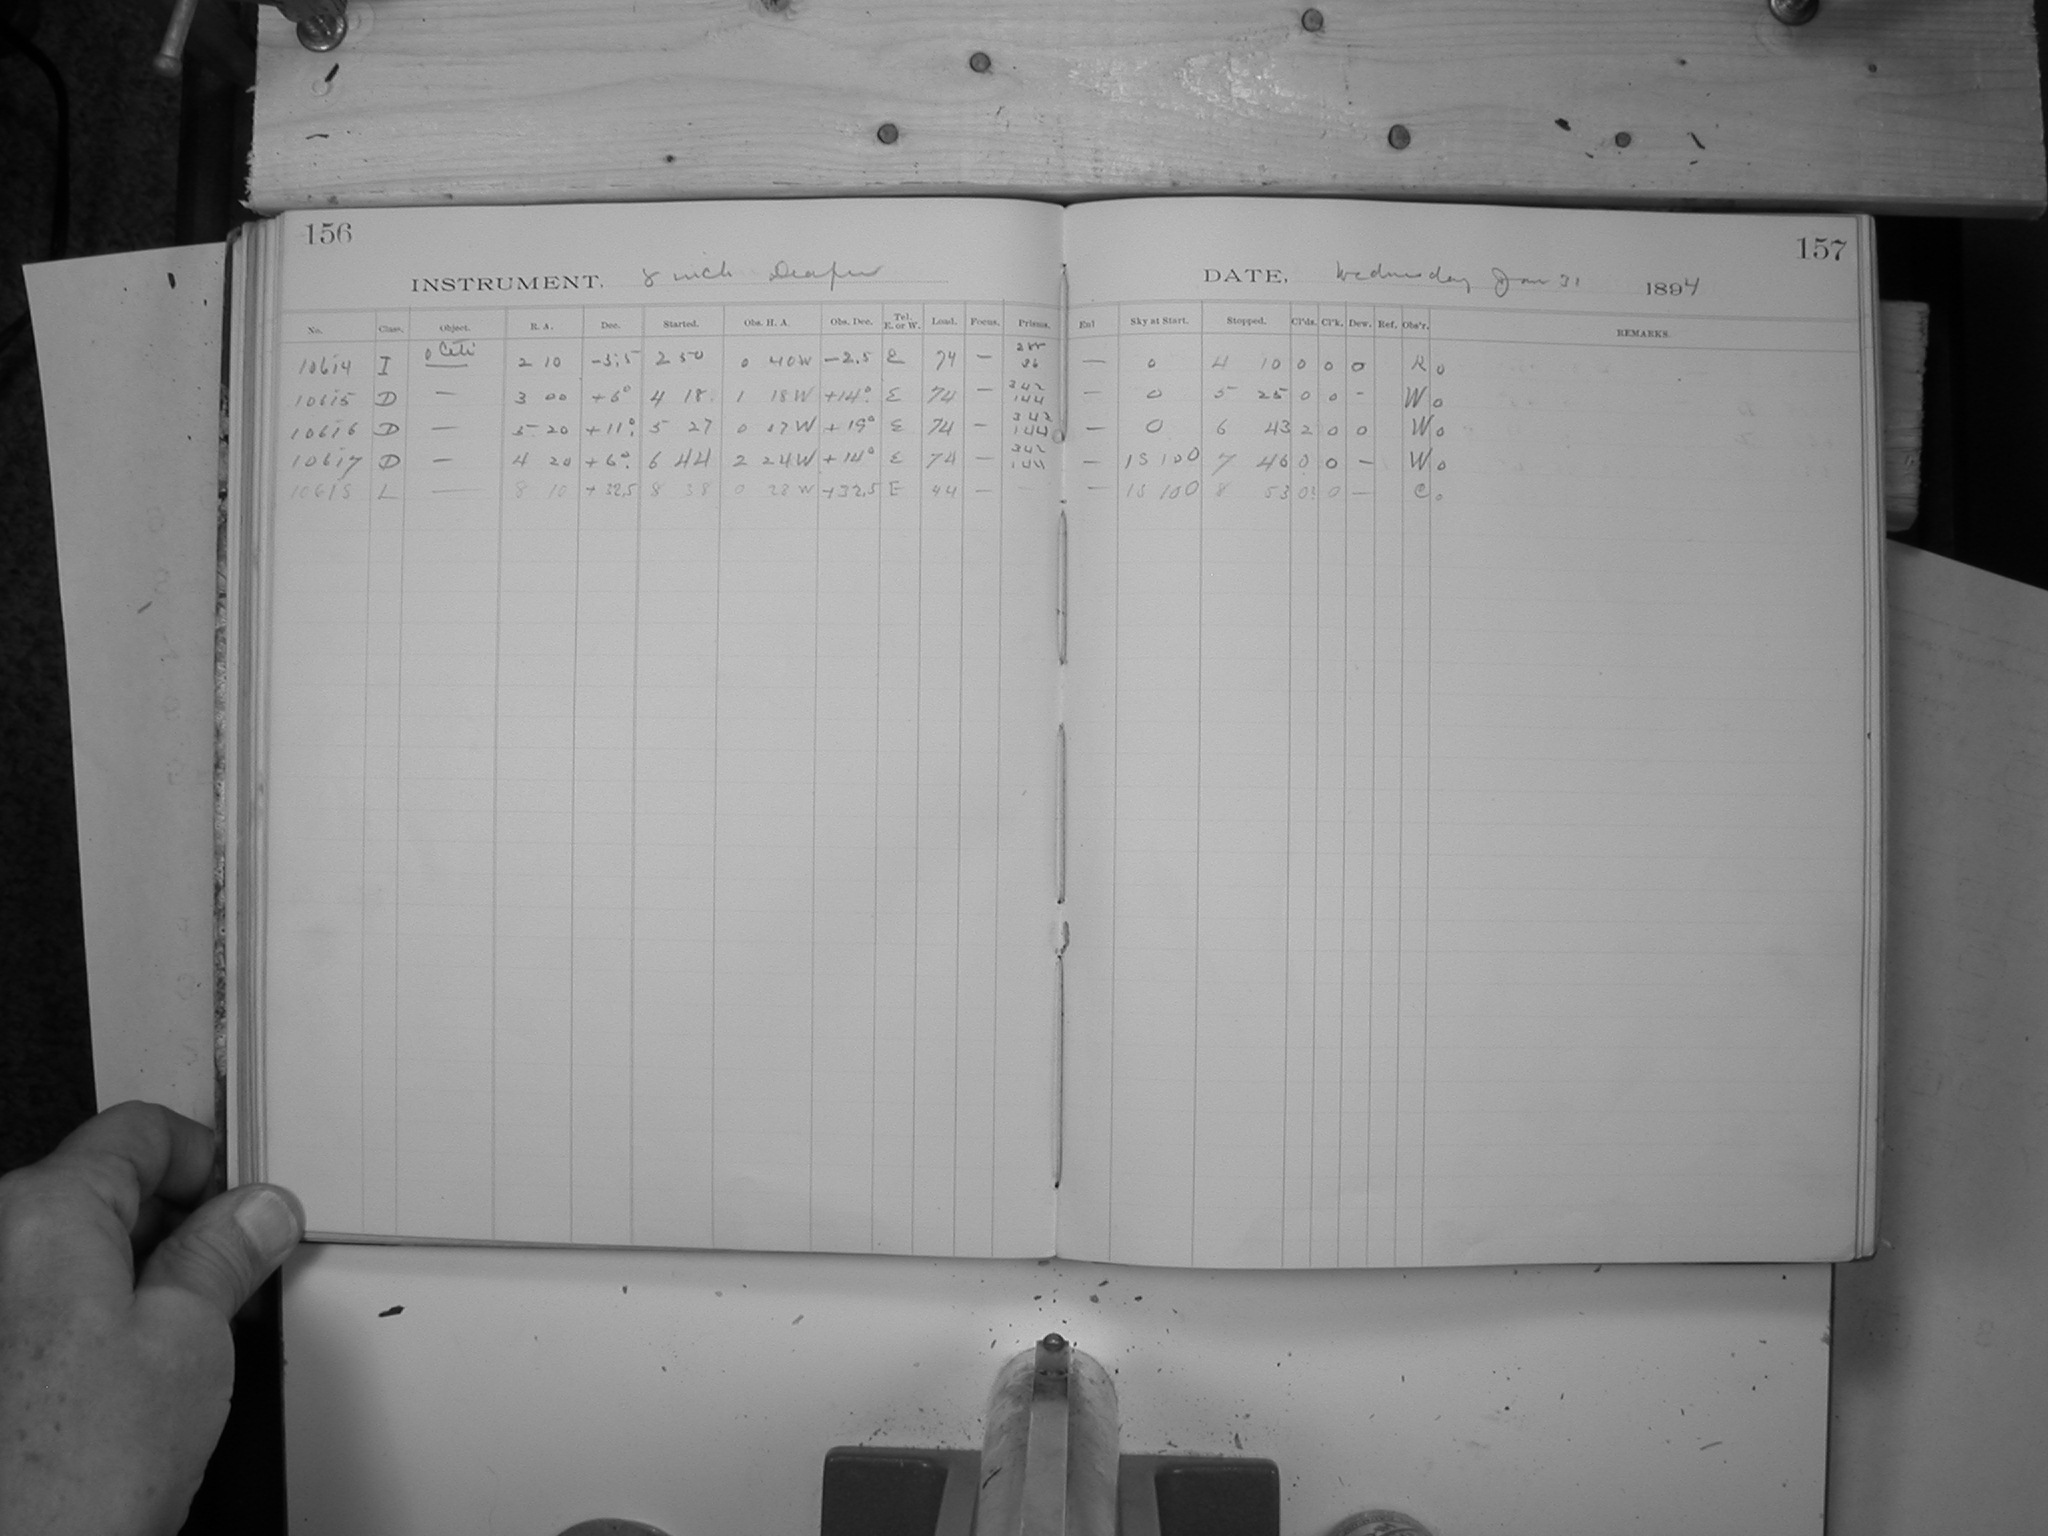 156
157
INSTRUMENT. 8 inch Draper
DATE, Wednesday Jan 31 1894
No. Class. Object. R. A. Dec. Started. Obs. H. A. Obs. Dec. Tel. E. or W. Load. Focus. Prisms. Enl Sky at Start. Stopped. Cl'ds. Cl'k. Dew. Ref. Obs'r. REMARKS.
10614 I o Ceti 2 10 -3.5 2 50 0 40 W -2.5 E 74 — — 0 4 10 0 0 0 R o
10615 D — 3 00 +6° 4 18 1 18 W +14° E 74 — 342 144 — 0 5 25 0 0 - W o
10616 D — 5 20 +11° 5 27 0 07 W +19° E 74 — 342 144 — 0 6 43 2 0 0 W o
10617 D — 4 20 +6° 6 44 2 24 W +14° E 74 — 342 144 — 1S 100 7 46 0 0 — W o
10618 L — 8 10 +32.5 8 38 0 28 W +32.5 E 44 — — 1S 100 8 53 0? 0 — C o